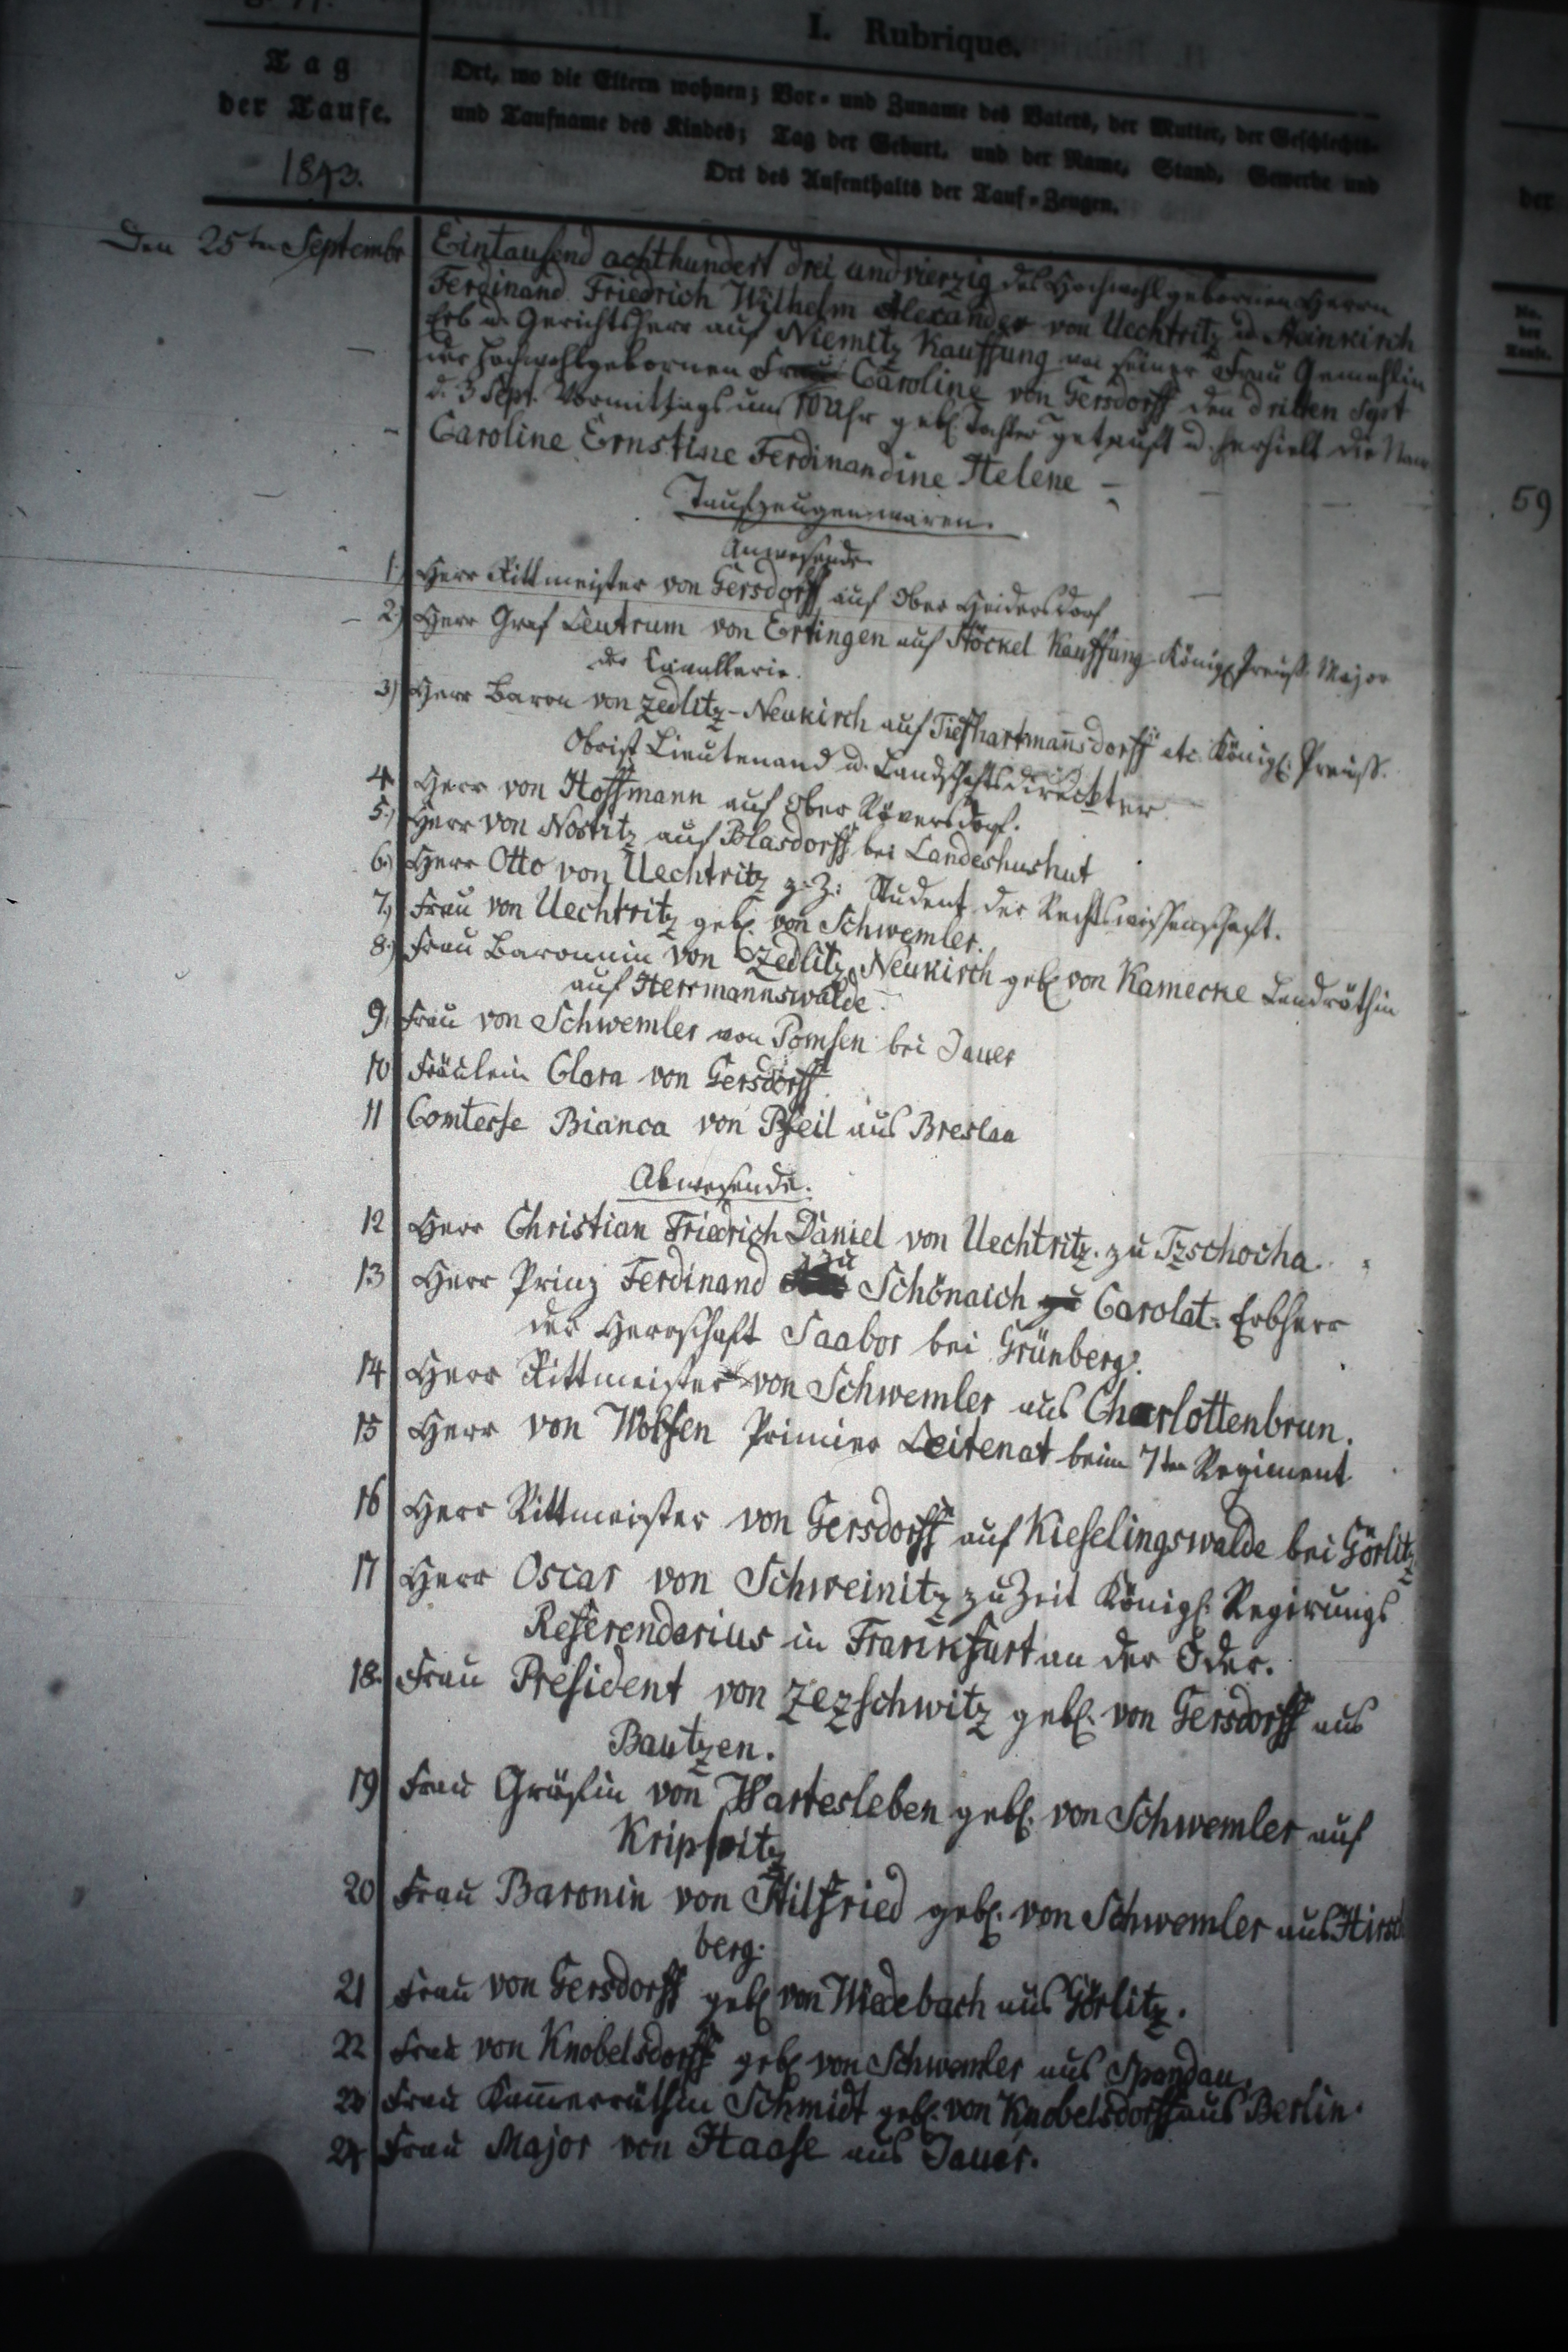 I. Rubrique.
Tag
der Taufe.
1843.
Ort, wo die Eltern wohnen; Vor- und Zuname des Vaters, der Mutter, der Geschlechts-
und Taufname des Kindes; Tag der Geburt, und der Name, Stand, Gewerbe und
Ort des Aufenthalts der Tauf-Zeugen.
Den 25ten Septembr
Eintausend achthundert drei und vierzig des Hochwohlgebornen Herrn
Ferdinand Friedrich Wilhelm Alexander von Uechtritz u. Steinkirch
Erb u. Gerichtsherr auf Niemitz Kauffung von seiner Frau Gemahlin
der Hochwohlgebornen Frau Caroline von Gersdorff den dritten Sept
d. 3 Sept. Vormittags um 10 Uhr geb. Tochter getauft u. erhielt die Nam
Caroline Ernstine Ferdinandine Helene –
Taufzeugen waren.
Anwesende
1.) Herr Rittmeister von Gersdorff auf Ober Heidersdorf
2.) Herr Graf Leutrum von Ertingen auf Stöckel Kauffung Königl. Preuß. Major
der Cavallerie.
3) Herr Baron von Zedlitz-Neukirch auf Tiefhartmannsdorff etc. Königl. Preuß.
Obrist Lieutenand u. Landschaftsdirecktter
4. Herr von Hoffmann auf Ober Röversdorf.
5.) Herr von Nostitz auf Blasdorff bei Landeshushut
6.) Herr Otto von Uechtritz z. Z: Student der Rechtswissenschaft.
7.) Frau von Uechtritz geb. von Schwemler.
8.) Frau Baronnin von Zedlitz Neukirch geb. von Kamecke Landräthin
auf Herrmannswalde.
9. Frau von Schwemler von Pomsen bei Jauer
10 Fräulein Clara von Gersdorff
11 Comtesse Bianca von Pfeil aus Breslau
Abwesende.
12 Herr Christian Friedrich Daniel von Uechtritz. zu Tzschocha.
13 Herr Prinz Ferdinand zu Schönaich zu Carolat. Erbherr
der Herrschaft Saabor bei Grünberg.
14 Herr Rittmeister von Schwemler aus Charlottenbrun.
15 Herr von Wolfen Primier Leitenat beim 7ten Regiment
16 Herr Rittmeister von Gersdorff auf Kieselingswalde bei Görlitz
17 Herr Oscar von Schweinitz zu Zeit Königl. Regirungs
Referendarius in Frankfurt an der Oder.
18. Frau President von Zezschwitz geb. von Gersdorff aus
Bautzen.
19 Frau Gräfin von Wartesleben geb. von Schwemler auf
Kripsitz
20 Frau Baronin von Stilfried geb. von Schwemler aus Hirsch
berg.
21 Frau von Gersdorff geb. von Wiedebach aus Görlitz.
22 Frau von Knobelsdorff geb. von Schwemler aus Spandau.
23 Frau Kam̅erräthin Schmidt geb. von Knobelsdorff aus Berlin.
24 Frau Major von Haase aus Jauer.
der
No.
der
Taufe.
59